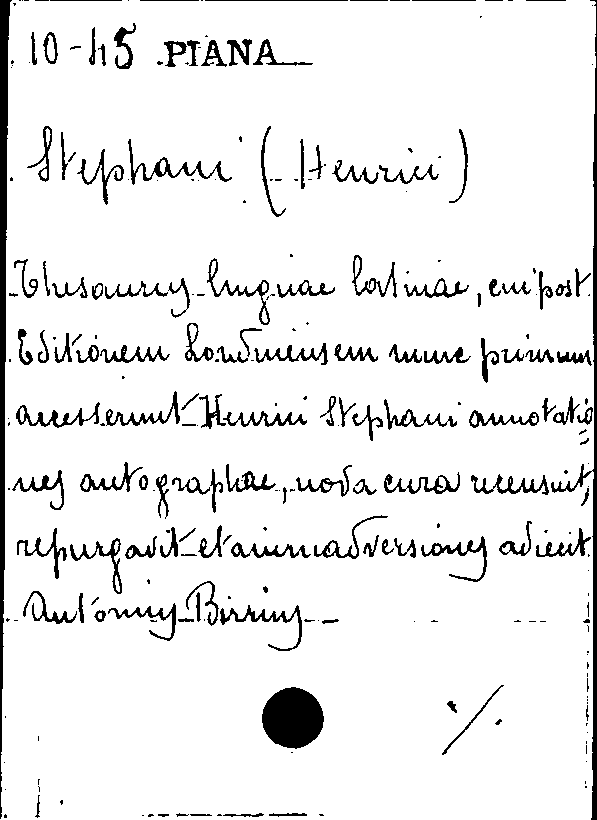 10-45 PIANA
Stephani (Henrici)
Thesaurus linguae latinae, cui post
Editionem Londinensem nunc primum
accesserunt Henrici Stephani annotatio=
nes autographae, nova cura recensuit,
repurgavit et animadversiones adiecit
Antonius Birrius
./.